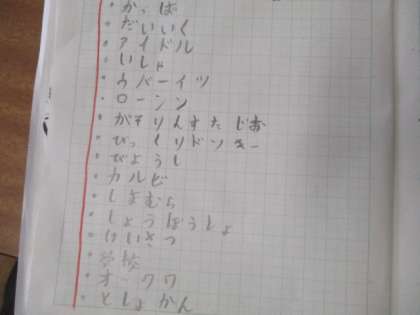 ・かっぱ
・だいいく
・アイドル
・いしゃ
・ウバーイツ
・ローソン
・がそりんすたじお
・びっくりドンキー
・びようし
・カルビ
・しまむら
・しょうぼうしょ
・けいさつ
・学校
・オークワ
・としょかん